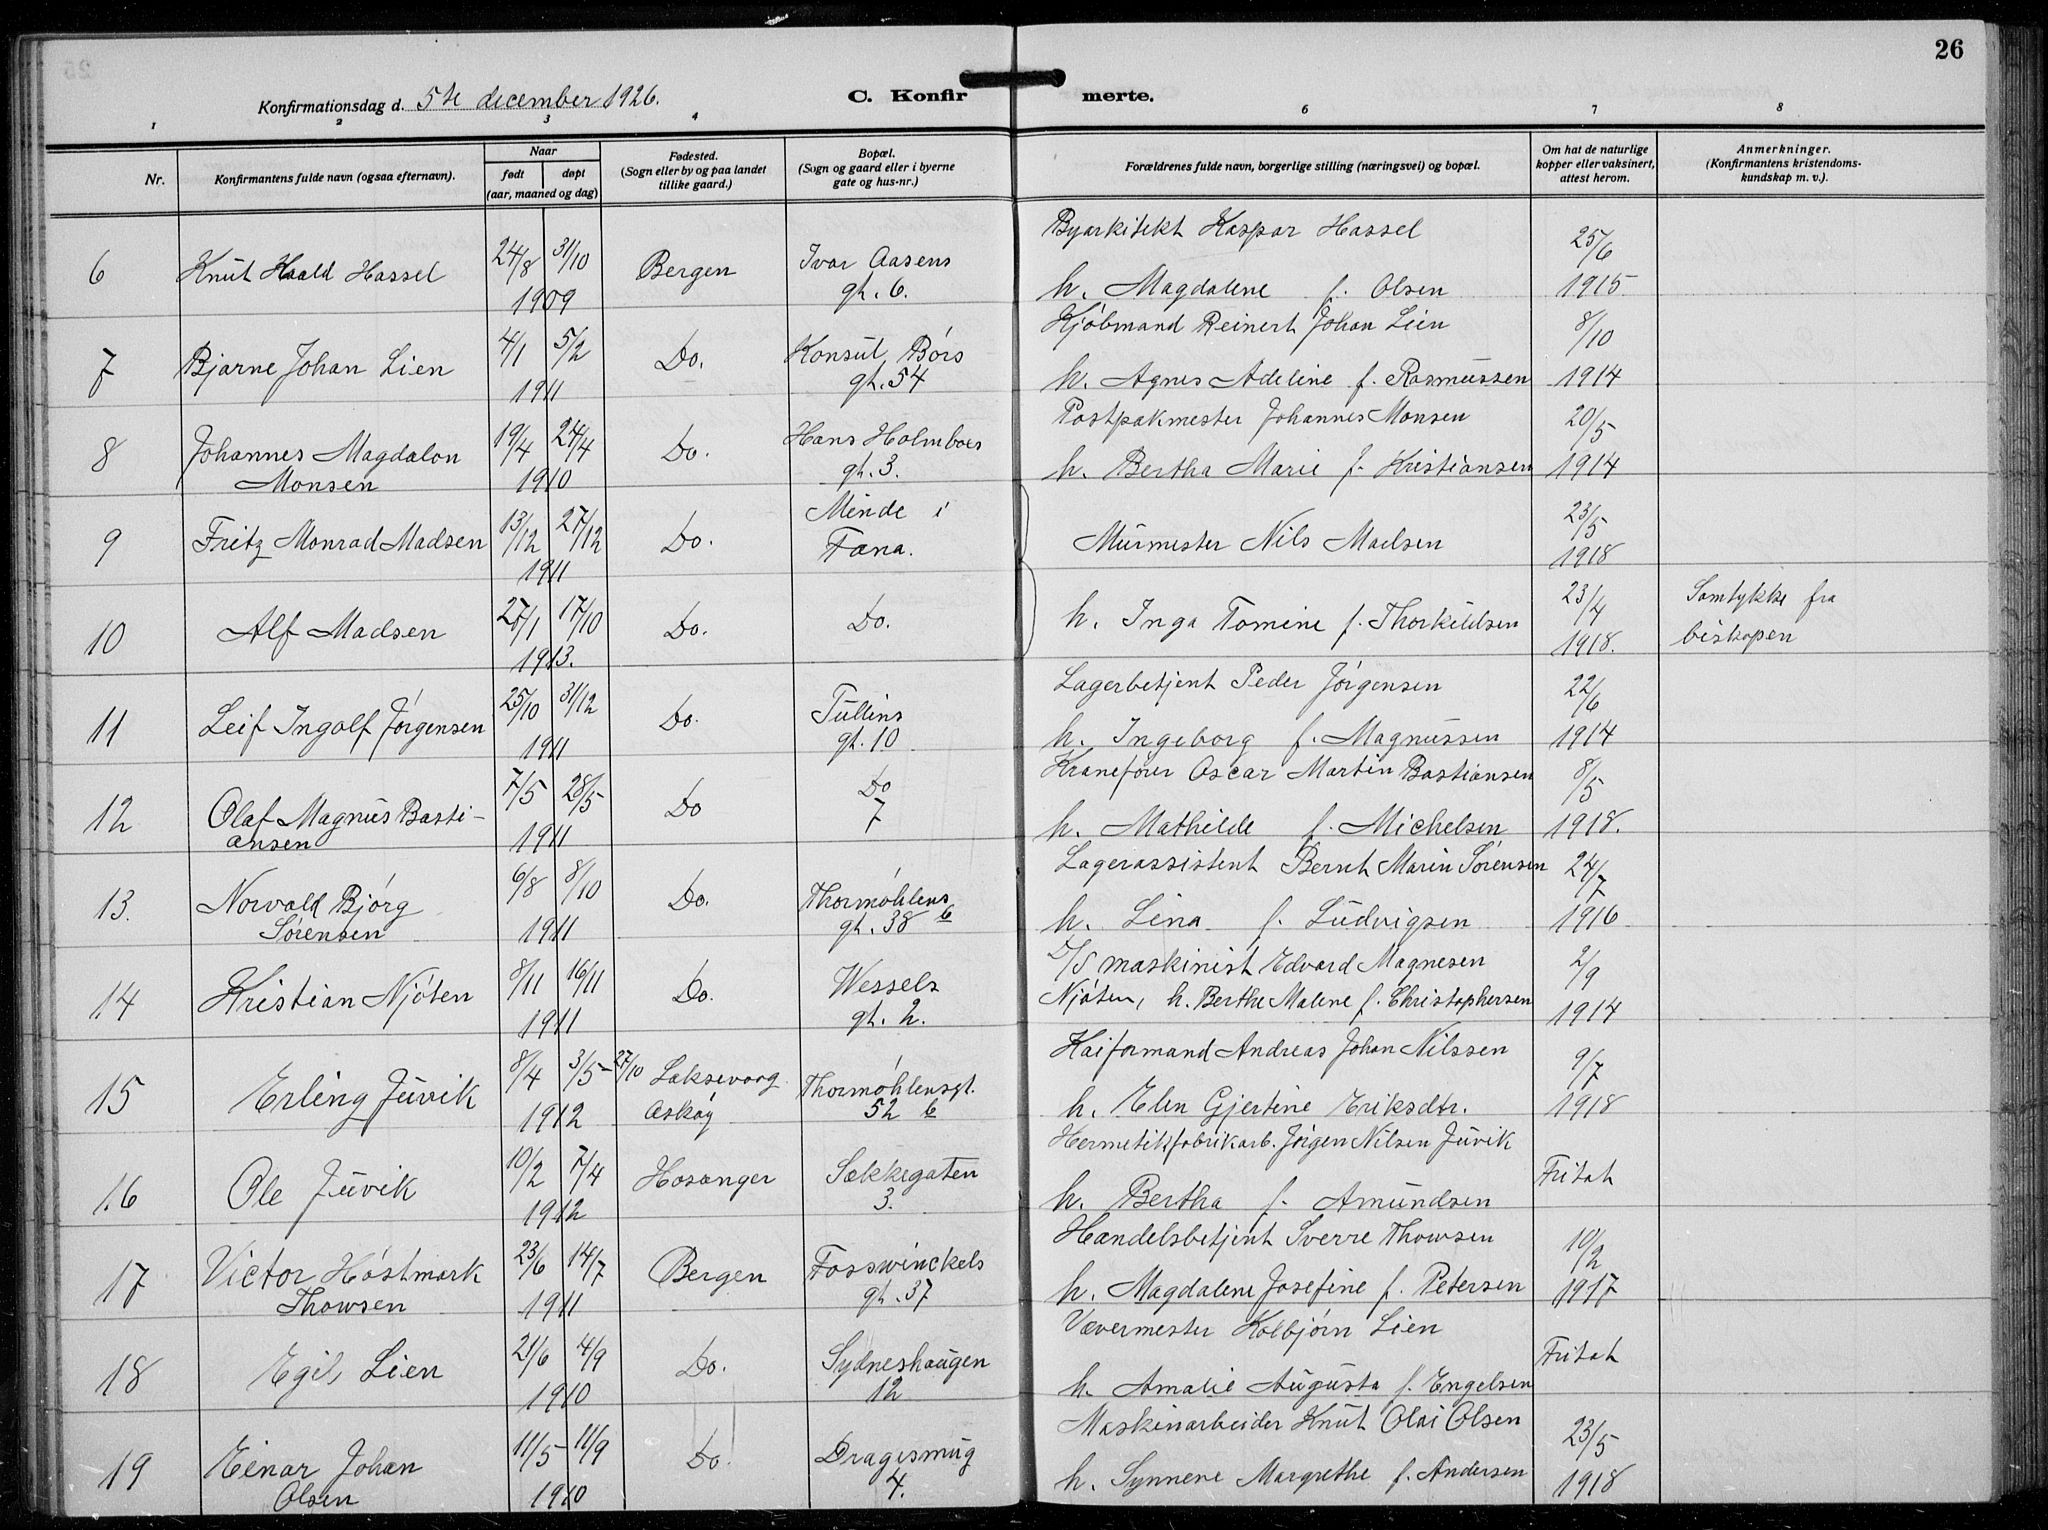 26
Konfirmationsdag d. 5te december 1926. C. Konfirmerte.
1 2 3 4 6 7 8
Nr. Konfirmantens fulde navn (ogsaa efternavn). Naar født døpt (aar, maaned og dag) Fødested. (Sogn eller by og paa landet tillike gaard.) Bopæl. (Sogn og gaard eller i byerne gate og hus-nr.) Forældrenes fulde navn, borgerlige stilling (næringsvei) og bopæl. Om hat de naturlige kopper eller vaksinert, attest herom. Anmerkninger. (Konfirmantens kristendoms-kundskap m. v.).
6 Knut Harald Hassel 24/8 31/10 1909 Bergen Ivar Aasens gt. 6. Byarkitekt Kaspar Hassel
h. Magdalene f. Olsen 25/6 1915
7 Bjarne Johan Lien 4/1 5/2 1911 Do. Konsul Børs gt. 54 Kjøbmand Reinert Johan Lien
h. Agnes Adeline f. Rasmussen 8/10 1914
8 Johannes Magdalon Monsen 19/4 24/4 1910 Do. Hans Holmboes gt. 3. Postpakmester Johannes Monsen
h. Bertha Marie f. Kristiansen 20/5 1914
9 Fritz Monrad Madsen 13/12 27/12 1911 Do. Minde i Fana. Murmester Nils Madsen 23/5 1918
10 Alf Madsen 27/1 17/10 1913. Do. Do. h. Inga Tomine f. Thorkildsen 23/4 1918. Samtykke fra biskopen
11 Leif Ingolf Jørgensen 25/10 31/12 1911 Do. Tullins gt. 10 Lagerbetjent Peder Jørgensen
h. Ingeborg f. Magnussen 22/6 1914
12 Olaf Magnus Basti-ansen 7/5 28/5 1911 Do Do 7 Kranefører Oscar Martin Bastiansen
h. Mathilde f. Michelsen 8/5 1918.
13. Norvald Bjørg Sørensen 6/8 8/10 1911 Do. Thormøhlens gt. 38 b Lagerassistent Bernt Marin Sørensen
h. Lina f. Ludvigsen 24/7 1916
14 Kristian Njøten 8/11 16/11 1911 Do. Wessels gt. 2. D/S maskinist Edvard Magnesen
Njøten, h. Berthe Malene f. Christophersen 2/9 1914
15 Erling Juvik 8/4 3/5-27/10 1912 Laksevaag Askøy Thormøhlensgt. 52 b Kaiformand Andreas Johan Nilssen
h. Elen Gjertine Eriksdtr. 9/7 1918
16 Ole Juvik 10/2 7/4 1912 Hosanger Sækkegaten 3. Hermetikfabrikarb. Jørgen Nilsen Juvik
h. Bertha f. Amundsen Fritat
17 Victor Høstmark Thowsen 23/6 14/7 1911 Bergen Fosswinckels gt. 37 Handelsbetjent Sverre Thowsen
h. Magdalene Josefine f. Petersen 10/2 1917
18 Egil Lien 21/6 4/9 1910 Do. Sydneshaugen 12 Vævermester Kolbjørn Lien
h. Amalie Augusta f. Engelsen Fritat
19 Einar Johan Olsen 11/5 11/9 1910 Do. Dragesmug 4. Maskinarbeider Knut Olai Olsen
h. Synneve Margrethe f. Andersen 23/5 1918